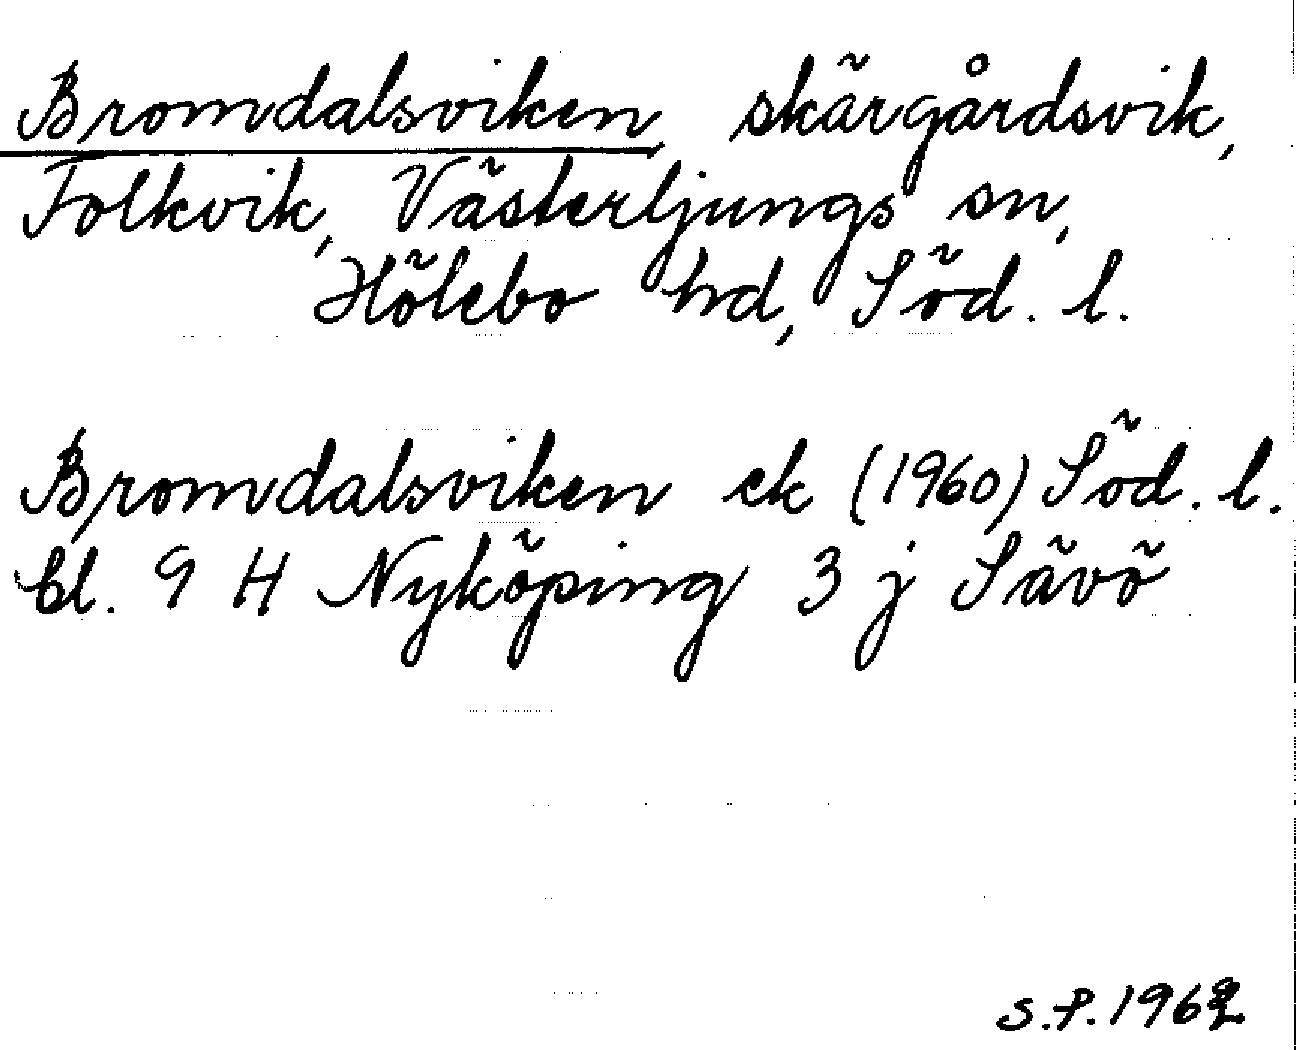 Bromdalsviken, skärgårdsvik,
Folkvik, Västerljungs sn,
Hölebo hd, Söd. l.
Bromdalsviken ek (1960) Söd. l.
bl. 9 H Nyköping 3 j Sävö
S.P. 1962